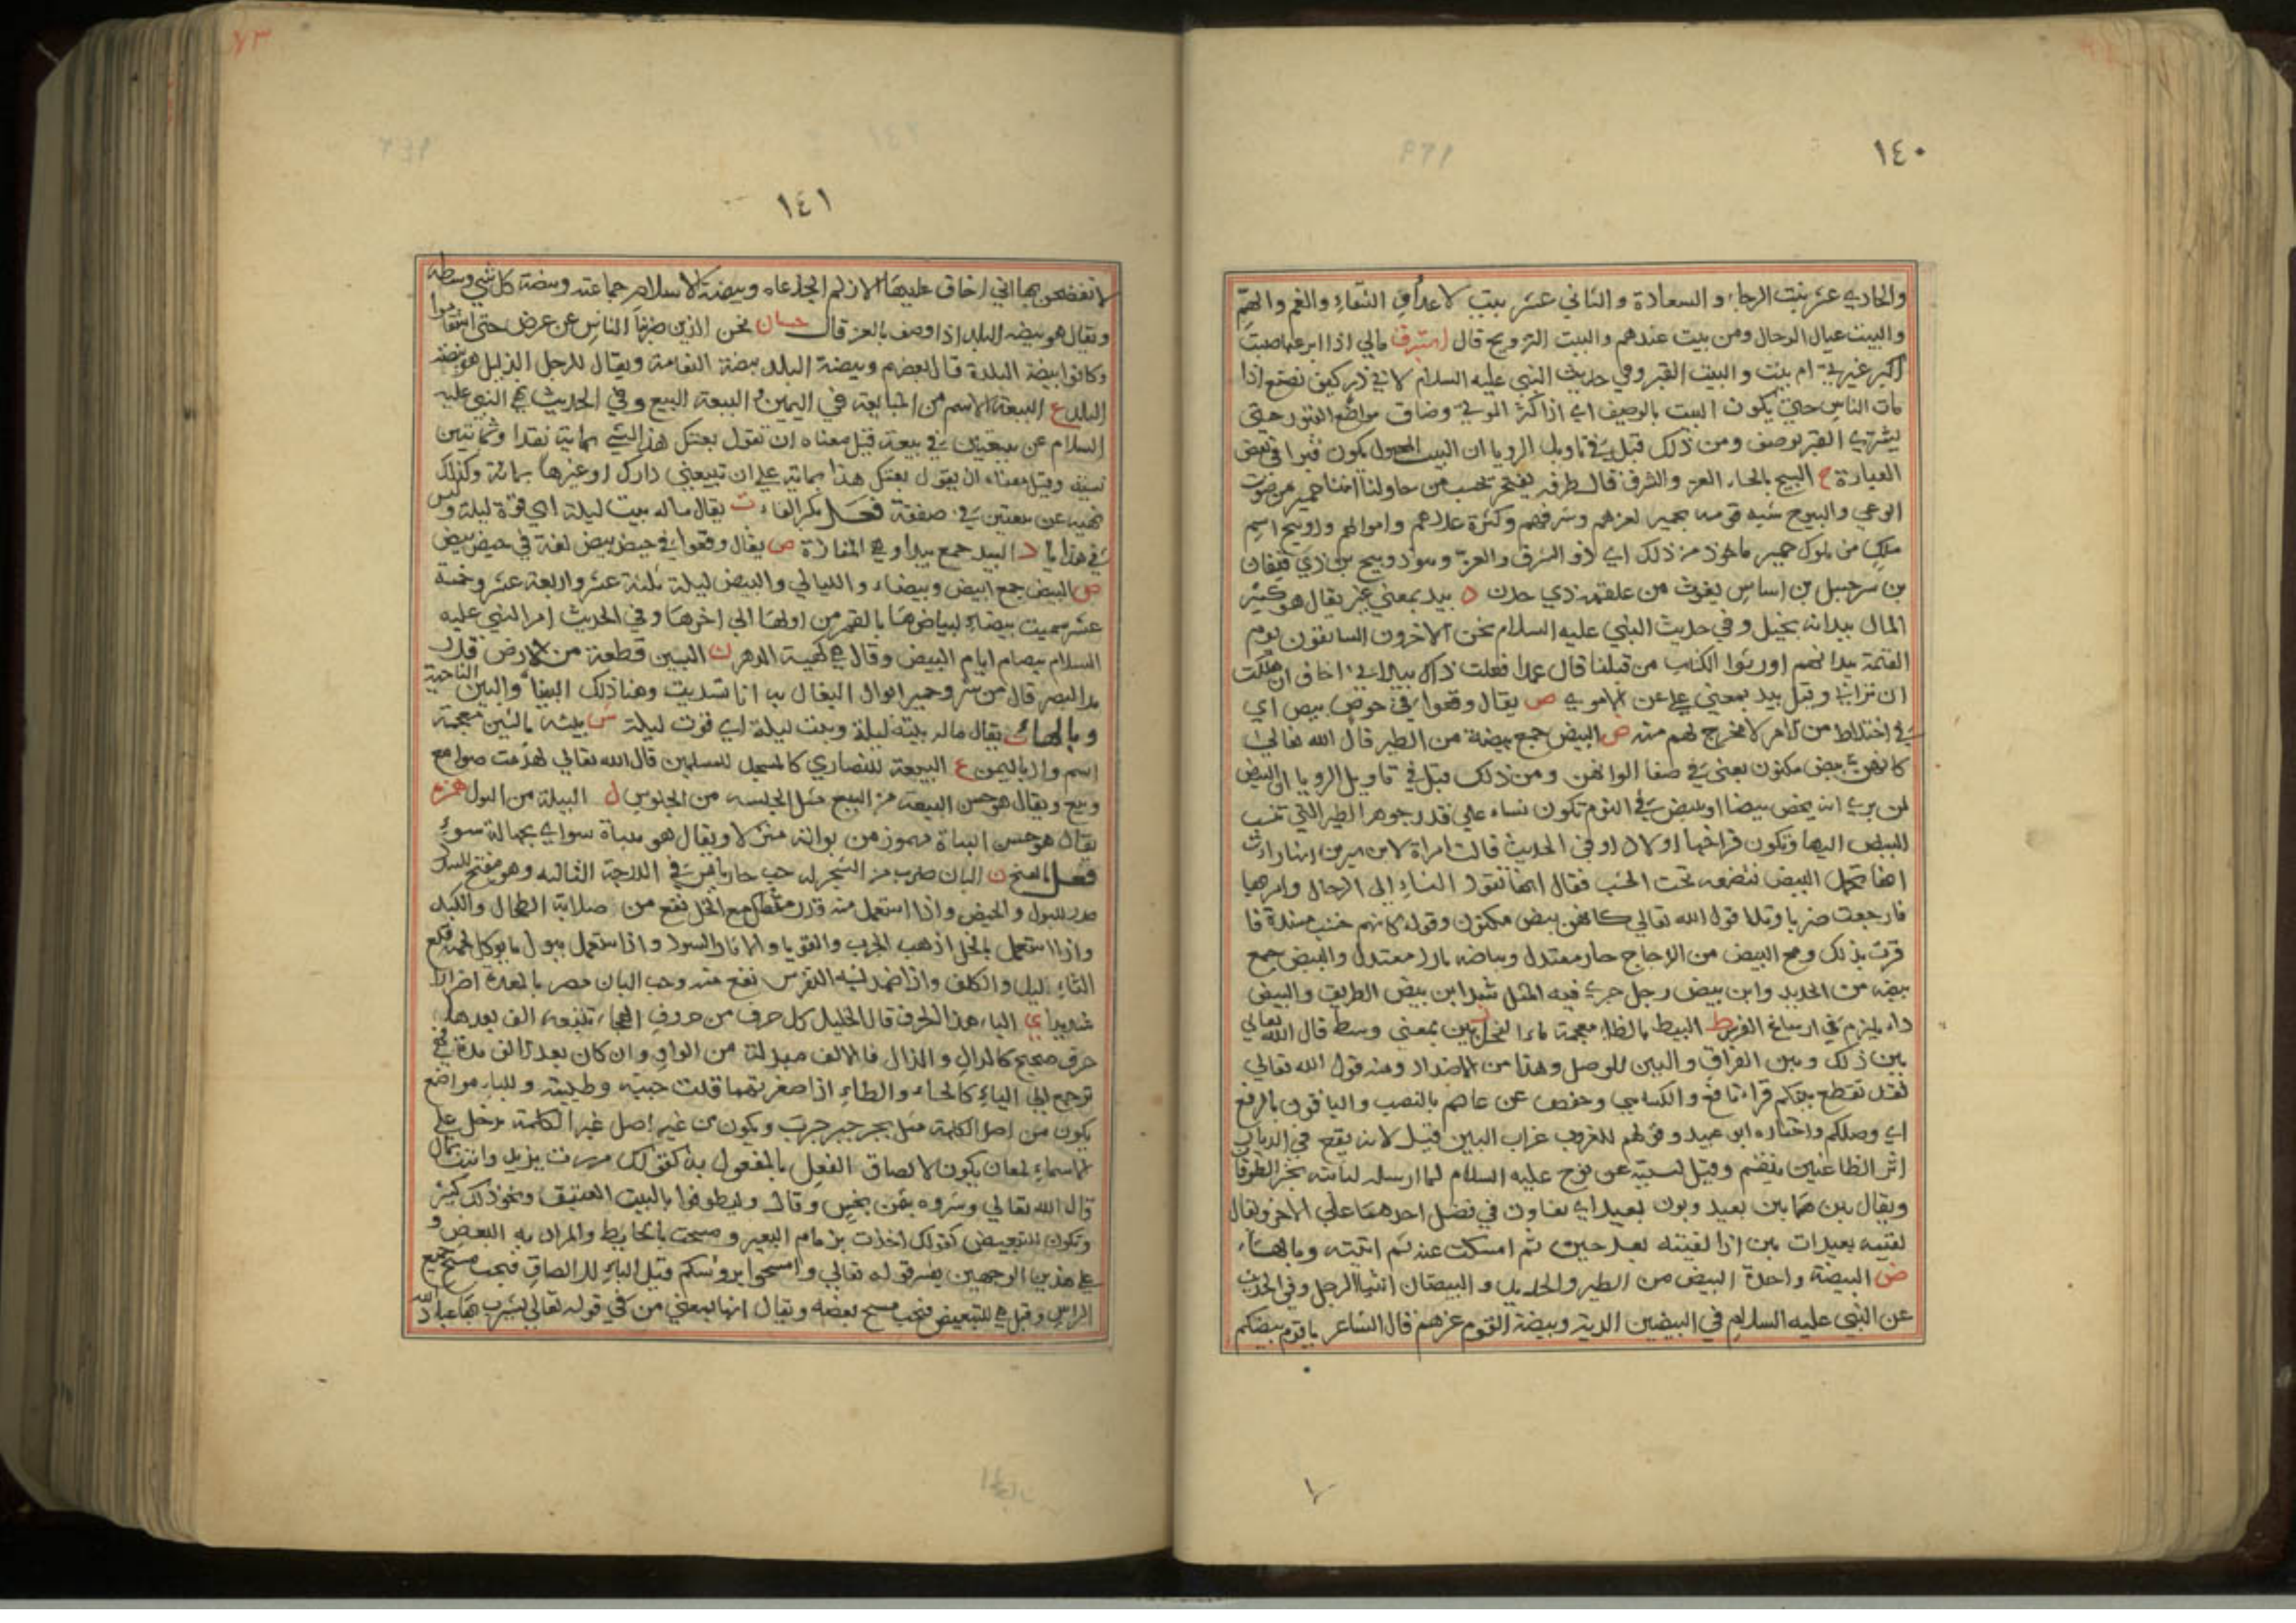 ١٤٠
والحادي عشر بيت الرجاء والسعادة والثاني عشر بيت الاعداء والشقاء والغم والهم
والبيت عيال الرجال ومن بيت عندهم والبيت التزويج قال مالي اذا
اكبر غيرني ام بيت والبيت القبر وفي حديث النبي عليه السلام لابي ذر كيف تصنع اذا
مات الناس حتي يكون البيت بالوصيف اي اذا كثر الموتي وضاق مواضع القبور حتى
يشتري القبر بوصيف ومن ذلك قيل في تاويل الرويا ان البيت المجهول يكون قبرا في بعض
العبارة ح البيح بالحاء العز والشرف قال طرفه
لعزهم وشرفهم وكثرة عددهم واموالهم وذو بيح اسم
ملك من ملوك حمير ماخوذ من ذلك اي ذو الشرف والعز وهو ذو بيح بن ذي قيفان
بن شرحبيل بن اساس يغوث من علقمة ذي جدن د بيد بمعني غير يقال هو كثير
المال بيد انه بخيل وفي حديث النبي عليه السلام نحن الاخرون السابقون يوم
القيمة بيد انهم اوتوا الكتاب من قبلنا قال عمدا فعلت ذاك بيد اني اخاف ان هلكت
ان تراني وقيل بيد بمعني علي عن الاموي ص يقال وقعوا في حوص بيص اي
في اختلاط من الامر لا مخرج لهم منه ض البيض جمع بيضة من الطير قال الله تعالي
كانهن بيض مكنون يعني في صفاء الوانهن ومن ذلك قيل في تاويل الرويا ان البيض
لمن يري انه بيضا او بيض في النوم تكون نساء علي قدر جوهر الطير التي تنسب
البيض اليها وتكون فراخها اولادا وفي الحديث قالت امراة لابن سيرين انها رات
انها تحمل البيض فتضعه تحت الخشب فقال انها تقود النساء الي الرجال وامر بها
فاوجعت ضربا وتلا قول الله تعالي كانهن بيض مكنون وقوله كانهم خشب مسندة فا
قرت بذلك ومح البيض من الدجاج حار معتدل وبياضه بارد معتدل والبيض جمع
بيضه من الحديد وابن بيض رجل جري فيه المثل سد ابن بيض الطريق والبيض
داء يلزم في ارساغ الفرس ط البيظ بالظاء معجمة ماء الفحل ن بين بمعني وسط قال الله تعالي
بين ذلك وبين الفراق والبين للوصل وهذا من الاضداد ومنه قول الله تعالي
لقد تقطع بينكم قراء نافع والكسايي وحفص عن عاصم بالنصب والباقون بالرفع
اي وصلكم واختاره ابو عبيد وقولهم للغراب غراب البين قيل لانه يقع في الديار
اثر الظاعنين وقيل لبينه عن نوح عليه السلام لما ارسله لياتيه بخبر الطوفان
ويقال بين هما بين بعيد وبون بعيد اي تفاوت في فضل احدهما علي الاخر ويقال
لقتيه بعيدات بين اذا لقيته بعد حين ثم امسكت عنه ثم اتيته وبالهاء
ض البيضة واحدة البيض من الطير والحديد والبيضتان انثيا الرجل وفي الحديث
عن النبي عليه السلام في البيضين الدية وبيضة القوم عزهم قال الشاعر يا قوم بيضتكم
١٤١
لا تفضحن بها اني اخاف عليها الازلم الجذعا وبيضة الاسلام جماعته وبيضة كل شي وسطه
ويقال هو بيضه البلد اذا وصف بالعز قال حسان نحن الذين ضربنا الناس عن عرض حتي استقاموا
وكانوا بيضة البلد قال بعضهم وبيضة البلد بيضة النعامة ويقال للرجل الذليل هو بيضة
البلد ع البيعة الاسم من المبايعة في اليمين والبيعة البيع وفي الحديث نهي النبي عليه
السلام عن بيعتين في بيعة قيل معناه ان تقول بعتك هذا الشي بماية نقدا وثمانين
نسية وقيل معناه ان يقول بعتك هذا بماية علي ان تبيعني دارك او غيرها بمائة وكذلك
نهيه عن بيعتين في صفقة فعل بكسر الفاء ت يقال ما له بيت ليلة اي قوة ليلة وليس
في هذا يا د البيد جمع بيداء وهي المفازة ص يقال وقعوا في حيص بيص لغة في حيص بيص
ض البيض جمع ابيض وبيضاء والليالي والبيض ليلة ثلثة عشر واربعة عشر وخمسة
عشر سميت بيضا لبياضها بالقمر من اولها الي اخرها وفي الحديث امر النبي عليه
السلام بصيام ايام البيض وقال هي كهيئة الدهر ن البين قطعة من الارض قدر
مد البصر قال من سرو حمير ابوال البغال به والبين الناحية
وبالهاء ت يقال ماله بيته ليلة وبيت ليلة اي قوت ليلة ش بيشه بالشين معجمة
اسم واد باليمن ع البيعة للنصاري كالمسجد للمسلمين قال الله تعالي لهدمت صوامع
وبيع ويقال هو حسن البيعة من البيع مثل الجلسه من الجلوس ل البيلة من البول همزه
يقال هو حسن البياة مهموز من بوانه منزلا ويقال هو ببياة سوء اي بحالة سوء
فعل بالفتح ن البان ضرب من الشجر له حب حار يابس في الدرجة الثالثه وهو مفتح للسدد
مدر للبول والحيض واذا استعمل منه قدر مثقال مع الخل نفع من صلابة الطحال والكبد
واذا استعمل بالخل اذهب الجرب والقوبا والاثار السود واذا استعمل ببول ما يوكل لحمه قلع
الثاليل والكلف واذا ضمد به النقرس نفع منه وحب البان مضر بالمعدة اضرارا
شديدا ي الباء هذا الحرف قال الخليل كل حرف من حروف الهجاء تتبعه الف بعدها
حرف صحيح كالدال والذال فالالف مبدلة من الواو وان كان بعد الالف مدة فهي
ترجع الي الياء كالحاء والطاء اذا صغرتهما قلت حيية وطيية وللباء مواضع
يكون من اصل الكلمة مثل بحر جبر جرب ويكون من غير اصل غير الكلمة تدخل علي
الاسماء لمعان يكون لالصاق الفعل بالمفعول به كقولك مررت بزيد
قال الله تعالي وشروه بثمن بخس وقال وليطوفوا بالبيت العتيق ونحو ذلك كثير
وتكون للتبعيض كقولك اخذت بزمام البعير ومسحت بالحايط والمراد به البعض و
علي هذين الوجهين يفسر قوله تعالي وامسحوا بروسكم قيل الباء للالصاق فيجب مسح جميع
الراس وقيل هي للتبعيض فيجب مسح بعضه ويقال انها بمعني من في قوله تعالي يشرب بها عباد الله